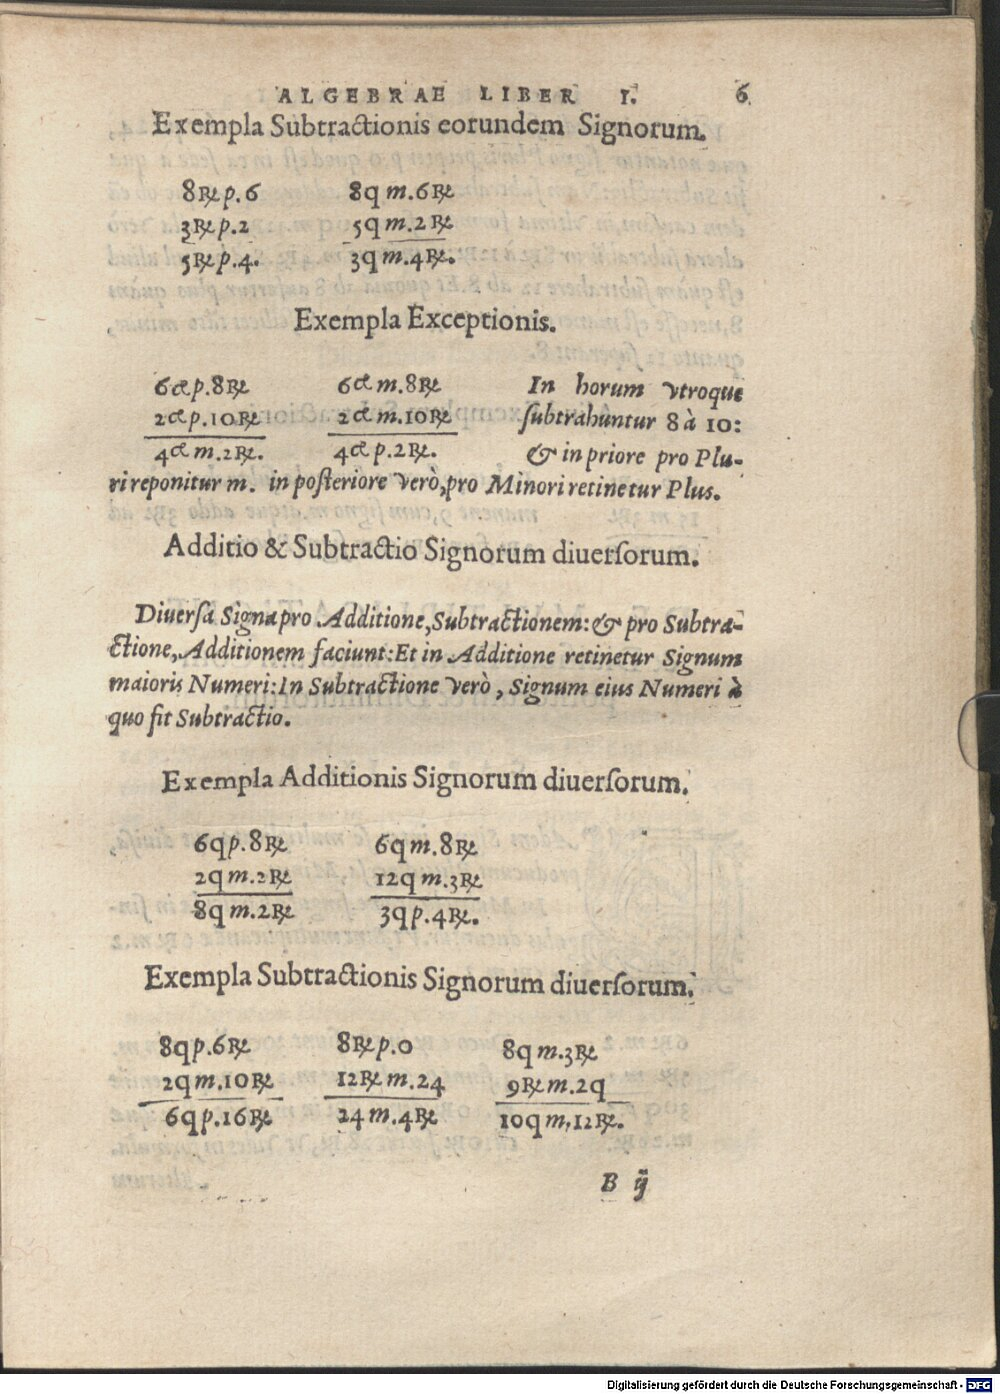 ALGEBRAE LIBER I. 6
Exempla Subtractionis eorundem Signorum.
8℞ p. 6 8q m. 6℞
3℞ p. 2 5q m. 2℞
5℞ p. 4. 3q m. 4℞.
Exempla Exceptionis.
6ce p. 8℞ 6ce m. 8℞ In horum vtroque
2ce p. 10℞ 2ce m. 10℞ ſubtrahuntur 8 à 10:
4ce m. 2℞. 4ce p. 2℞. & in priore pro Plu-
ri reponitur m. in poſteriore verò, pro Minori retinetur Plus.
Additio & Subtractio Signorum diuerſorum.
Diuerſa Signa pro Additione, Subtractionem: & pro Subtra-
ctione, Additionem faciunt: Et in Additione retinetur Signum
maioris Numeri: In Subtractione verò, Signum eius Numeri à
quo fit Subtractio.
Exempla Additionis Signorum diuerſorum.
6q p. 8℞ 6q m. 8℞
2q m. 2℞ 12q m. 3℞
8q m. 2℞ 3q p. 4℞.
Exempla Subtractionis Signorum diuerſorum.
8q p. 6℞ 8℞ p. 0 8q m. 3℞
2q m. 10℞ 12℞ m. 24 9℞ m. 2q
6q p. 16℞. 24 m. 4℞ 10q m, 12℞.
B ij
Digitalisierung gefördert durch die Deutsche Forschungsgemeinschaft - DFG